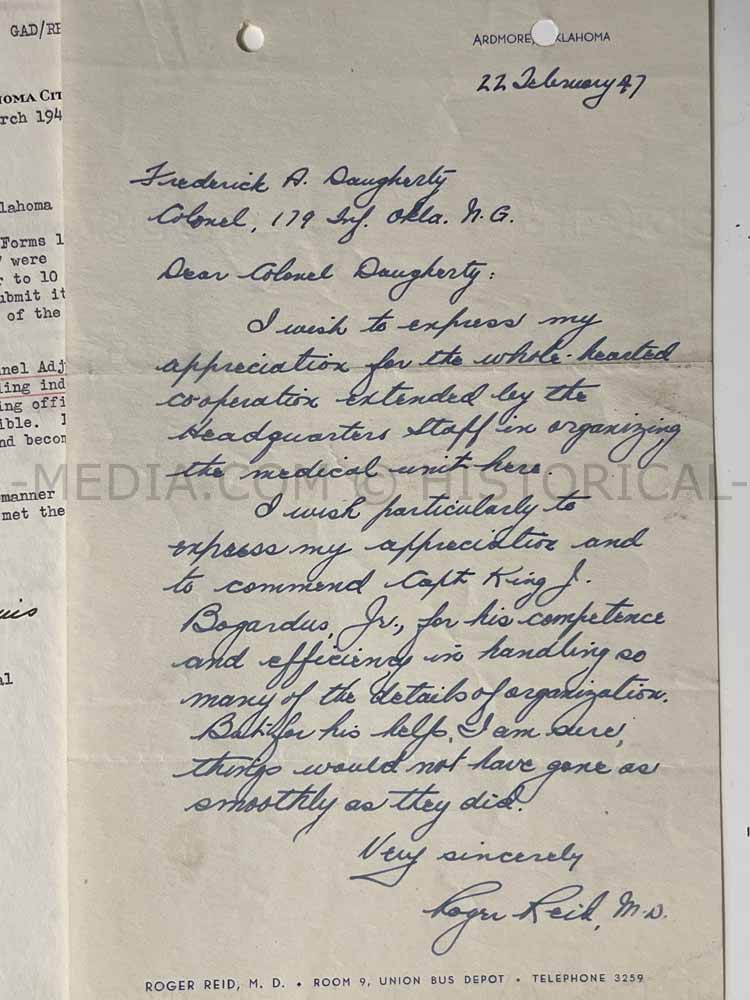 GAD/RE
OMA CIT
rch 194
lahoma
Forms 1
were
r to 10
ubmit it
of the
nel Adj
ling ind
ing offi
ible. I
nd becom
manner
met the
al
ARDMORE, KLAHOMA
22 February 47
Frederick A. Daugherty
Colonel, 179 Inf. Okla. N.G.
Dear Colonel Daugherty:
I wish to express my
appreciation for the whole-hearted
cooperation extended by the
Headquarters Staff in organizing
the medical unit here.
I wish particularly to
express my appreciation and
to commend Capt King J.
Bogardus, Jr., for his competence
and efficiency in handling so
many of the details of organization.
But for his help, I am sure,
things would not have gone as
smoothly as they did.
Very sincerely
Roger Reid, M.D.
ROGER REID, M. D. • ROOM 9, UNION BUS DEPOT • TELEPHONE 3259
-MEDIA.COM © HISTORICAL-